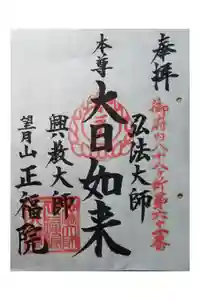 奉拝
御府内八十八ヶ所第六十一番
弘法大師
本尊
大日如来
興教大師
望月山正福院